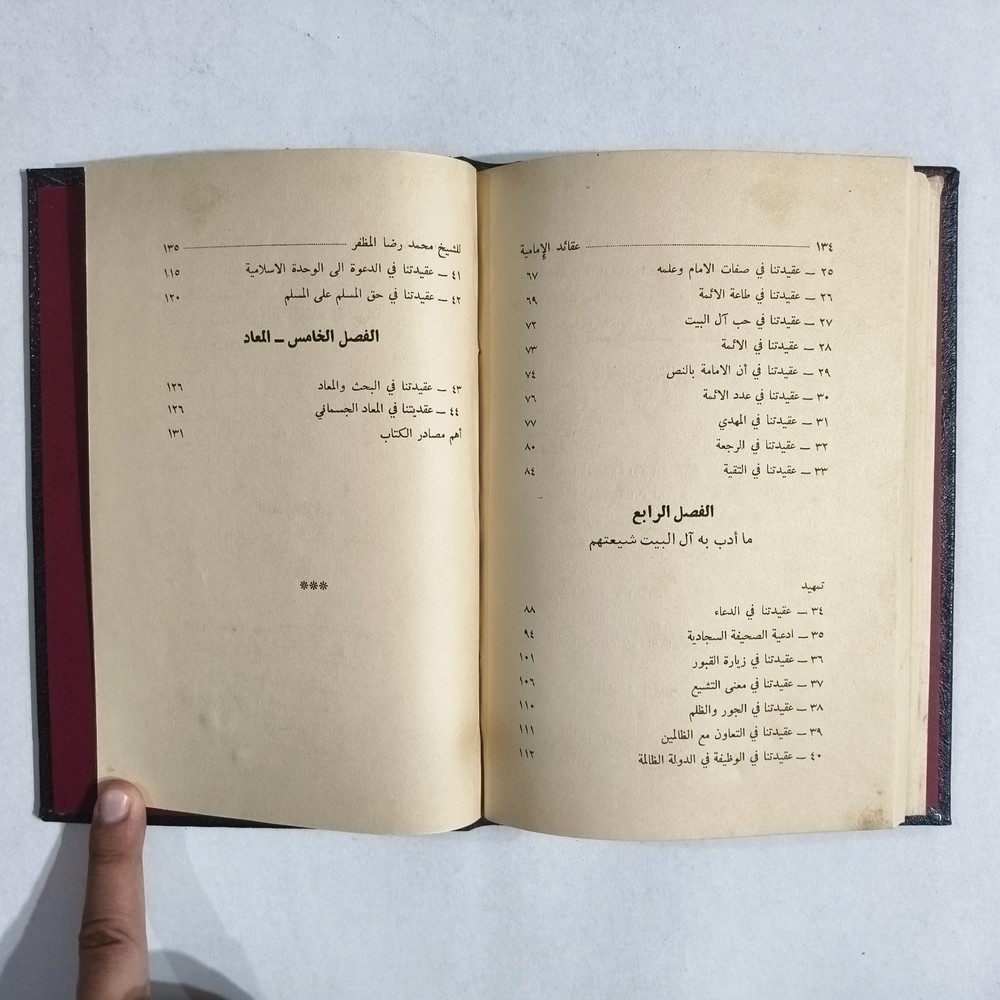 ١٣٤ عقائد الإمامية
٢٥ ــ عقيدتنا في صفات الامام وعلمه ٦٧
٢٦ ــ عقيدتنا في طاعة الائمة ٦٩
٢٧ ــ عقيدتنا في حب آل البيت ٧٢
٢٨ ــ عقيدتنا في الائمة ٧٣
٢٩ ــ عقيدتنا في أن الامامة بالنص ٧٤
٣٠ ــ عقيدتنا في عدد الائمة ٧٦
٣١ ــ عقيدتنا في المهدي ٧٧
٣٢ ــ عقيدتنا في الرجعة ٨٠
٣٣ ــ عقيدتنا في التقية ٨٤
الفصل الرابع
ما أدب به آل البيت شيعتهم
تمهيد
٣٤ ــ عقيدتنا في الدعاء ٨٨
٣٥ ــ ادعية الصحيفة السجادية ٩٤
٣٦ ــ عقيدتنا في زيارة القبور ١٠١
٣٧ ــ عقيدتنا في معنى التشيع ١٠٦
٣٨ ــ عقيدتنا في الجور والظلم ١١٠
٣٩ ــ عقيدتنا في التعاون مع الظالمين ١١١
٤٠ ــ عقيدتنا في الوظيفة في الدولة الظالمة ١١٢
للشيخ محمد رضا المظفر ١٣٥
٤١ ــ عقيدتنا في الدعوة الى الوحدة الاسلامية ١١٥
٤٢ ــ عقيدتنا في حق المسلم على المسلم ١٢٠
الفصل الخامس ــ المعاد
٤٣ ــ عقيدتنا في البحث والمعاد ١٢٦
٤٤ ــ عقديتنا في المعاد الجسماني ١٢٦
أهم مصادر الكتاب ١٣١
***